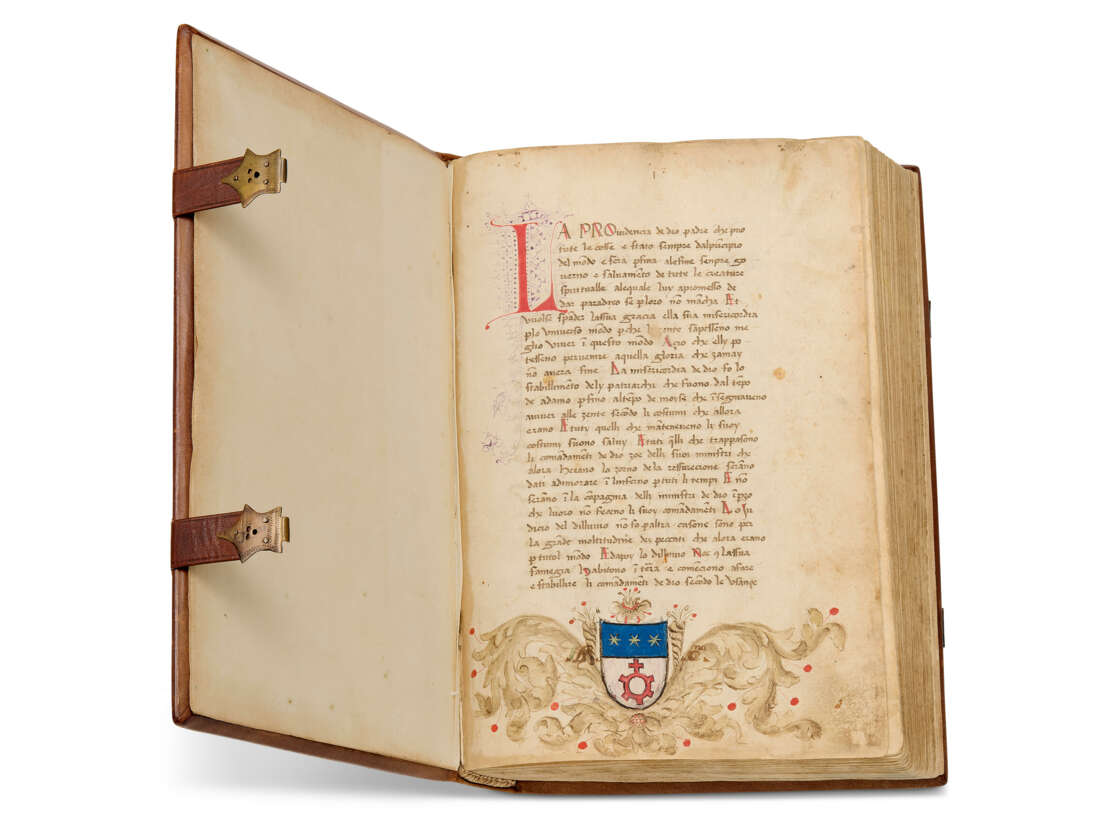 LA PROuidencia de dio padre che pro
tute le cosse e stato sempre dalpricipio
del mōdo e sera p̄fina alefine senpre go
uerno e saluamēto de tute le creature
spiritualle alequale luy apromesso de
dar paradixo se ploro nō mācha Et
vuolse spāder lassua gracia ella sua misericordia
plo vniuerso mōdo pche la zente sapesseno me
glio viuer ī questo mōdo Açio che elly po
tesseno peruenire aquella gloria che zamay
nō auera fine La misericordia de dio fo lo
stabillimēto dely patriarchi che fuono dal tēpo
de adamo pfino altēpo de moyse che īsegnaueno
auiuer alle zente secōdo li costumi che allora
erano E tuty quelli che mātenereno li suoy
costumi fuono saluy E tuti q̄lli che trappasono
li comādamēti de dio zoe delli suoi ministri che
alora herano lo zorno de la ressurecione serāno
dati adimorare ī linferno p tuti li tempi E nō
serāno ī la cōpagnia delli ministri de dio īpo
che luoro nō feceno li suoy comādamēti Lo Ju
dicio del dilluuio nō fo paltra casone sono per
la grāde moltitudine dei peccati che alora erano
p tutol mōdo E dapoy lo dilluuio Noe 7 lassua
famegia habitono ī terra e comēciono afare
e stabillire li comādamēti de dio secōdo le vsançe